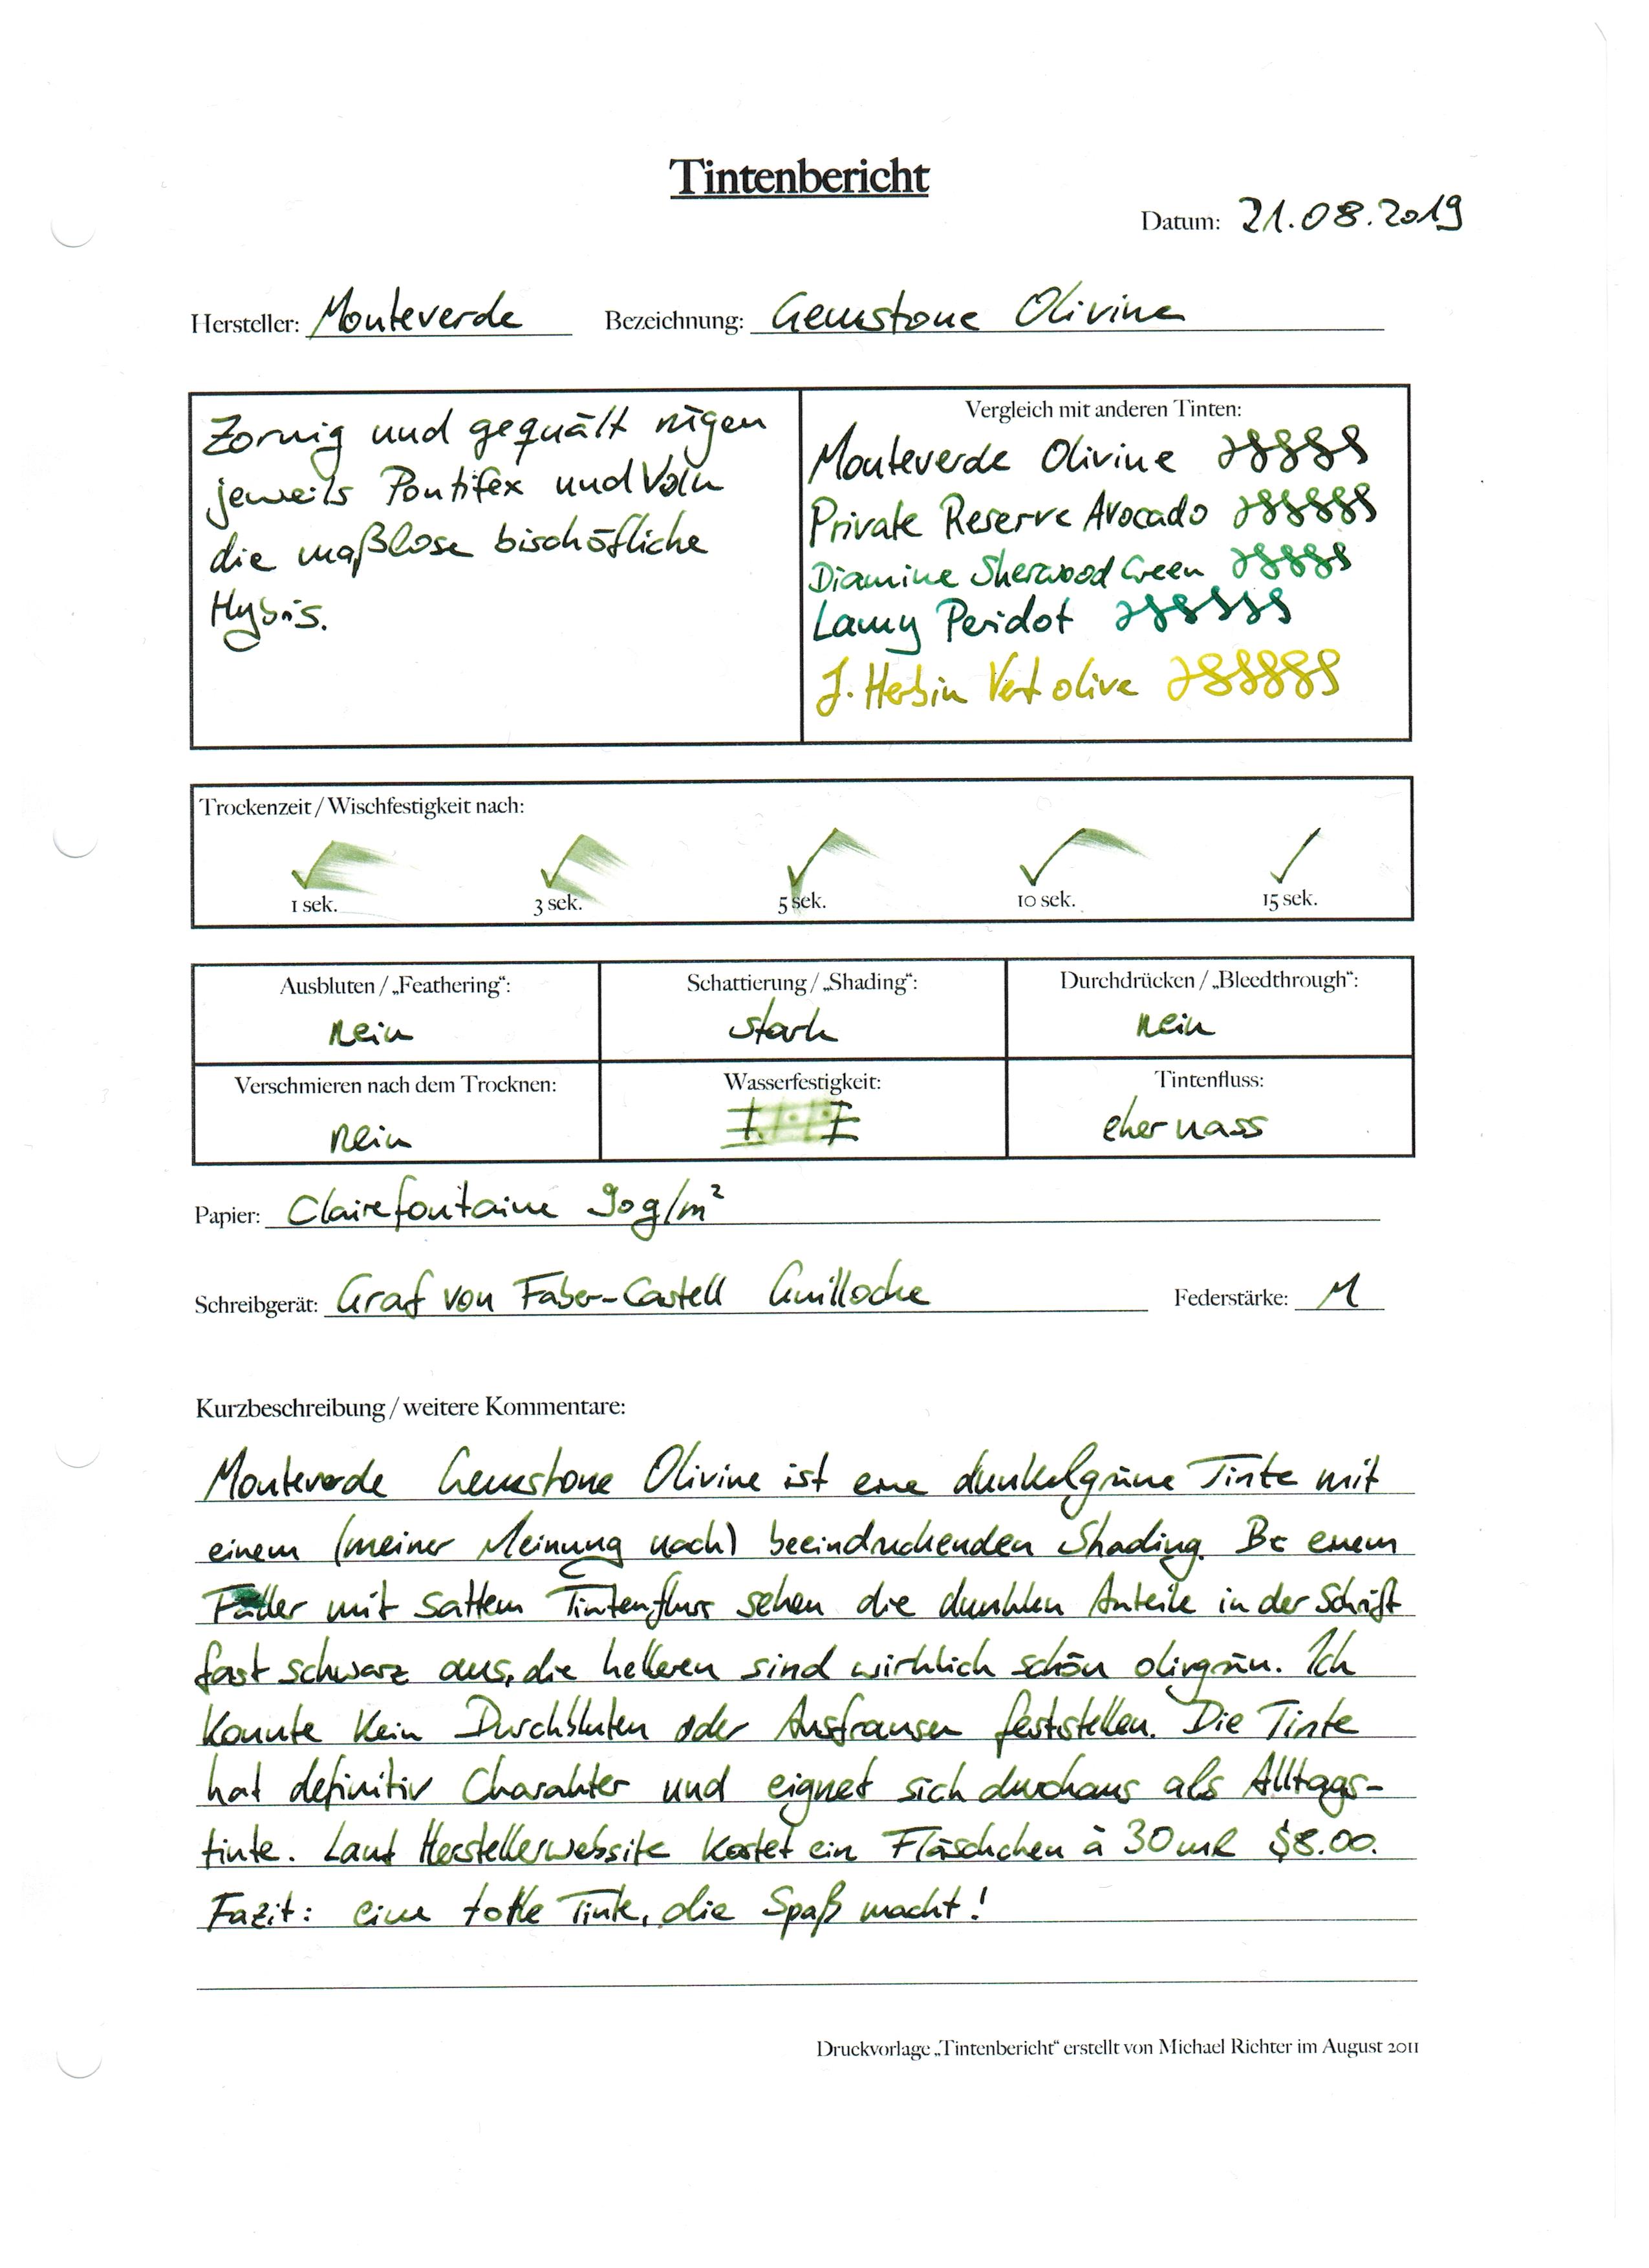 Tintenbericht
Datum: 21.08.2019
Hersteller: Monteverde Bezeichnung: Gemstone Olivine
Zornig und gequält rügen
jeweils Pontifex und Volk
die maßlose bischöfliche
Hybris.
Vergleich mit anderen Tinten:
Monteverde Olivine
Private Reserve Avocado
Diamine Sherwood Green
Lamy Peridot
J. Herbin Vert olive
Trockenzeit / Wischfestigkeit nach:
1 sek. 3 sek. 5 sek. 10 sek. 15 sek.
Ausbluten / „Feathering“: Schattierung / „Shading“: Durchdrücken / „Bleedthrough“:
nein stark nein
Verschmieren nach dem Trocknen: Wasserfestigkeit: Tintenfluss:
nein eher nass
Papier: Clairefontaine 90g/m²
Schreibgerät: Graf von Faber-Castell Guilloche Federstärke: M
Kurzbeschreibung / weitere Kommentare:
Monteverde Gemstone Olivine ist eine dunkelgrüne Tinte mit
einem (meiner Meinung nach) beeindruckenden Shading. Bei einem
Füller mit sattem Tintenfluss sehen die dunklen Anteile in der Schrift
fast schwarz aus, die helleren sind wirklich schön olivgrün. Ich
konnte kein Durchbluten oder Ausfransen feststellen. Die Tinte
hat definitiv Charakter und eignet sich durchaus als Alltags-
tinte. Laut Herstellerwebsite kostet ein Fläschchen à 30ml $8.00.
Fazit: eine tolle Tinte, die Spaß macht!
Druckvorlage „Tintenbericht“ erstellt von Michael Richter im August 2011